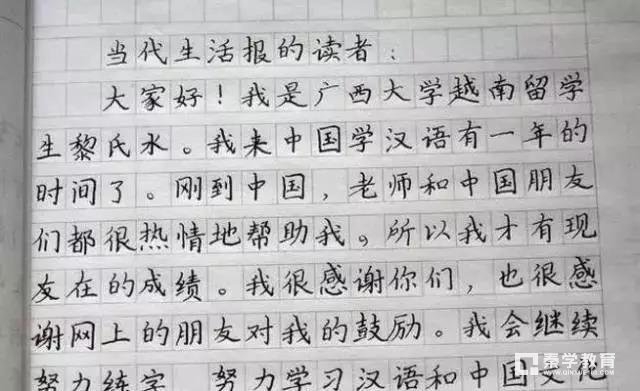 当代生活报的读者：
大家好！我是广西大学越南留学
生黎氏水。我来中国学汉语有一年的
时间了。刚到中国，老师和中国朋友
们都很热情地帮助我。所以我才有现
友在的成绩。我很感谢你们，也很感
谢网上的朋友对我的鼓励。我会继续
努力练字 努力学习汉语和中国
秦学教育